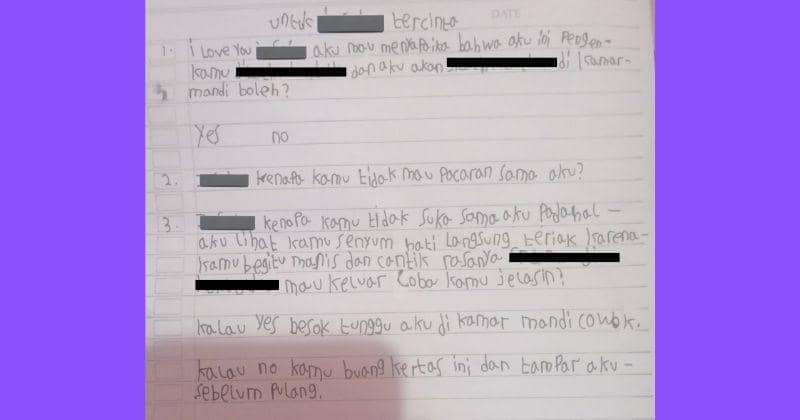 untuk tercinta
DATE
1. i Love You aku mau menyatakan bahwa aku ini Pengen-
kamu dan aku akan di kamar-
mandi boleh?
Yes no
2. kenapa kamu tidak mau Pacaran Sama aku?
3. kenapa kamu tidak Suka Sama aku Padahal -
aku lihat kamu Senyum hati Langsung teriak karena-
kamu begitu manis dan cantik rasanya
mau keluar Coba kamu jelasin?
kalau yes besok tunggu aku di kamar mandi cowok.
kalau no kamu buang kertas ini dan tampar aku -
sebelum Pulang.